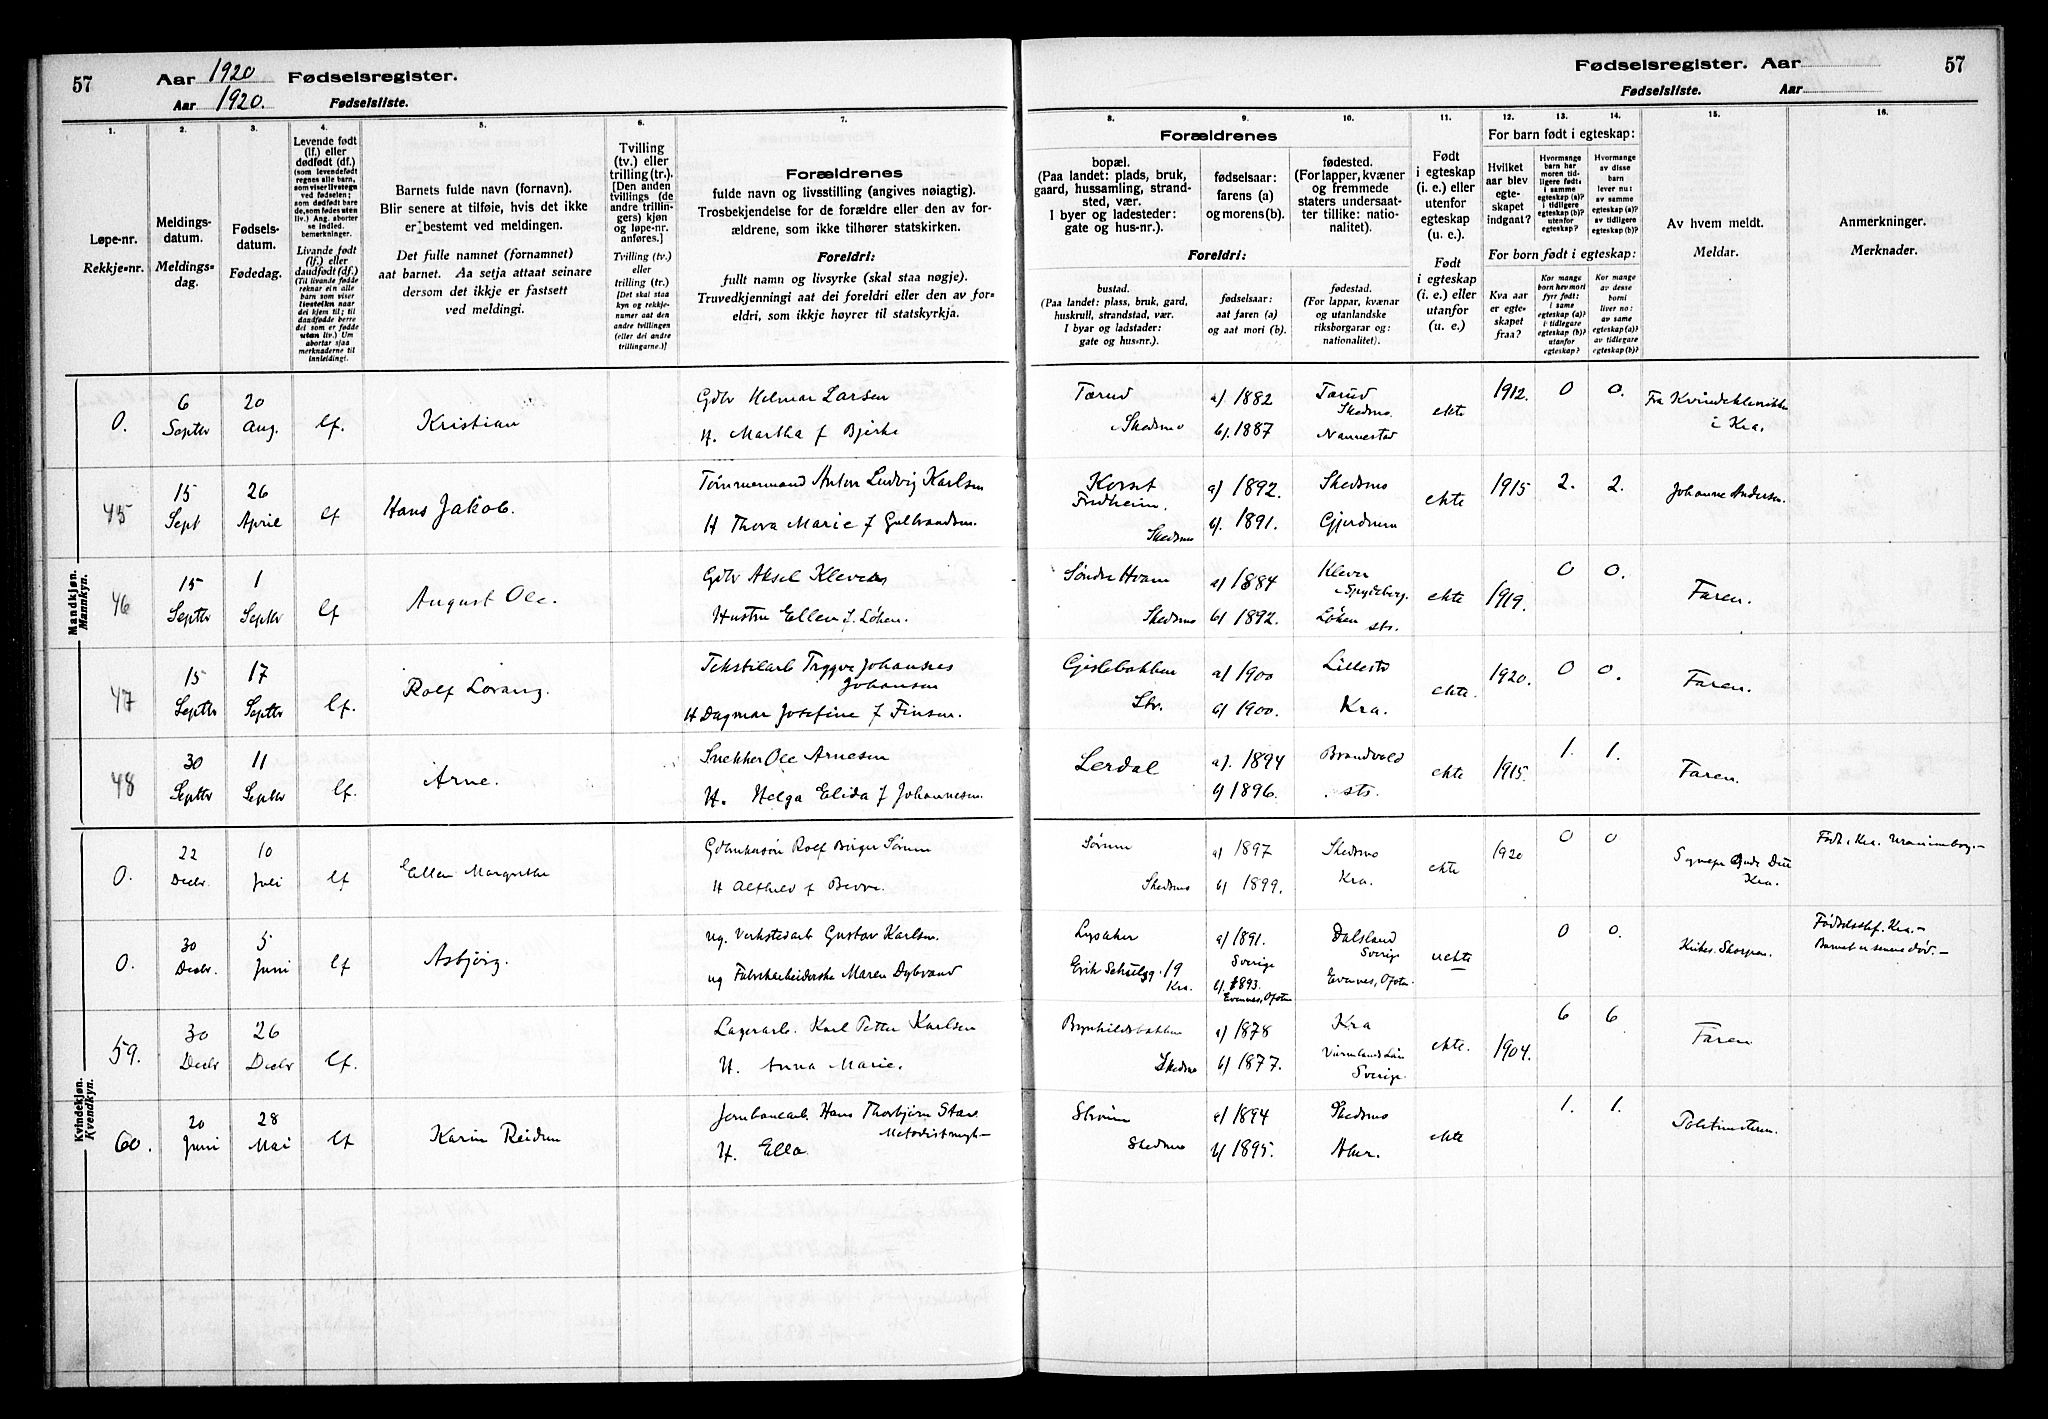 57
Aar 1920 Fødselsregister.
Aar 1920. Fødselsliste.
Fødselsregister. Aar
57
Fødselsliste. Aar
1.
Løpe-nr.
Rekkje-nr.
2.
Meldings-
datum.
Meldings-
dag.
3.
Fødsels-
datum.
Fødedag.
4.
Levende født
(lf.) eller
dødfødt (df.)
(som levendefødt
regnes alle barn,
som viser livstegn
ved fødselen;
som dødfødt bare
de, som fødes uten
liv.) Ang. aborter
se indled.
bemerkninger.
Livande født
(lf.) eller
daudfødt (df.)
(Til livande fødde
reknar ein alle
barn som viser
livsteikn naar
dei kjem til; til
daudfødde berre
dei som er fødde
utan liv.) Um
abortar sjaa
merknaderne til
innleiding!
5.
Barnets fulde navn (fornavn).
Blir senere at tilføie, hvis det ikke
er bestemt ved meldingen.
Det fulle namnet (fornamnet)
aat barnet. Aa setja attaat seinare
dersom det ikkje er fastsett
ved meldingi.
6.
Tvilling
(tv.) eller
trilling (tr.).
[Den anden
tvillings (de
andre trillin-
gers) kjøn
og løpe-nr.
anføres.]
Tvilling (tv.)
eller
trilling (tr.)
[Det skal staa
kyn og rekkje-
numer aat den
andre tvillingen
(eller dei andre
trillingarne.)]
7.
Forældrenes
fulde navn og livsstilling (angives nøiagtig).
Trosbekjendelse for de forældre eller den av for-
ældrene, som ikke tilhører statskirken.
Foreldri:
fullt namn og livsyrke (skal staa nøgje).
Truvedkjenningi aat dei foreldri eller den av for-
eldri, som ikkje høyrer til statskyrkja.
8.
9.
10.
Forældrenes
bopæl.
(Paa landet: plads, bruk,
gaard, hussamling, strand-
sted, vær.
I byer og ladesteder:
gate og hus-nr.).
fødselsaar:
farens (a)
og morens (b).
fødested.
(For lapper, kvæner
og fremmede
staters undersaat-
ter tillike: natio-
nalitet).
Foreldri:
bustad.
(Paa landet: plass, bruk, gard,
huskrull, strandstad, vær.
I byar og ladstader:
gate og hus-nr.).
fødselsaar:
aat faren (a)
og aat mori (b).
fødestad.
(For lappar, kvænar
og utanlandske
riksborgarar og:
nationalitet).
11.
Født
i egteskap
(i. e.) eller
utenfor
egteskap
(u. e.).
Født
i egteskap
(i. e.) eller
utanfor
(u. e.).
12.
13.
14.
For barn født i egteskap:
Hvilket
aar blev
egte-
skapet
indgaat?
Hvormange
barn har
moren tid-
ligere født:
i samme
egteskap (a)?
i tidligere
egteskap (b)?
utenfor
egteskap?
Hvormange
av disse
barn
lever nu:
av samme
egteskap (a)?
av tidligere
egteskap (b)?
For born født i egteskap:
Kva aar
er egte-
skapet
fraa?
Kor mange
born hev mori
fyrr født:
i same
egteskap (a)?
i tidlegare
egteskap (b)?
utanfor
egteskap?
Kor mange
av desse
borni
liver no:
av same
egteskap (a)?
av tidlegare
egteskap (b)?
15.
Av hvem meldt.
Meldar.
16.
Anmerkninger.
Merknader.
Mandkjøn.
Mannkyn.
0.
6 Septbr
20 Aug.
lf.
Kristian
Gdbr Helmar Larsen
H. Martha f Bjerke
Tærud
Skedsmo
a) 1882
b) 1887
Tærud
Skedsmo
Nannestad
ekte
1912.
0 0.
Fra Kvindeklinikken
i Kra.
45
15 Sept
26 April
lf
Hans Jakob.
Tømmermand Anton Ludvig Karlsen
H Thora Marie f Gulbrandsen.
Fredheim.
Skedsmo
a) 1892.
b) 1891.
Skedsmo
Gjerdrum
ekte
1915
2. 2.
Johanne Andersen.
46
15 Septbr
1 Septbr
lf
August Ole.
Gdbr Aksel Kleven
Hustru Ellen f. Løken.
Søndre Hvam
Skedsmo
a) 1884
b) 1892.
Kleven
Spydeberg.
Løken
sts.
ekte
1919.
0 0.
Faren.
47
15 Septbr
17 Septbr
lf.
Rolf Lorang.
Tekstilarb Trygve Johannes
Johansen
H Dagmar Josefine f Finsen.
Gislebakken
Str.
a) 1900
b) 1900.
Lillestr
Kra.
ekte.
1920.
0 0.
Faren.
48
30 Septbr
11 Septbr
lf.
Arne.
Snekker Ole Arnesen
H. Helga Elida f Johannesen.
Lerdal
a). 1894
b) 1896.
Brandvold
sts.
ekte
1915.
1. 1.
Faren.
Kvindekjøn.
Kvendkyn.
0.
22 Decbr.
10 Juli
lf
Ellen Margrethe
Gdbrukersøn Rolf Birger Sørum
H Alfhild f
Sørum
Skedsmo
a) 1897
b) 1899.
Skedsmo
Kra.
ekte
1920
0 0
Kra.
Født i Kra. Uranienborg.-
0.
30 Decbr.
5 Juni
lf
Asbjørg.
ug. Verkstedarb Gustav Karlsen.
ug Fabrikarbeiderske Maren Dybvand
Lysaker
Erik Schulsg. 19
Kra.
a) 1891.
Sverige
b). 1893.
Evenes, Ofoten
Dalsland
Sverige
Evenes, Ofoten.
uekte
0 0.
Fødselsstif. Kra.-
Barnet er senere død.-
59.
30 Decbr
26 Decbr
lf.
Lagerarb. Karl Petter Karlsen
H. Anna Marie.
Brynhildsbakken
Skedsmo
a) 1878
b) 1877.
Kra
Värmlands Län
Sverige.
ekte.
1904.
6 6.
Faren
60.
20 Juni
28 Mai
lf
Karin Reidun
Jernbanearb. Hans Thorbjørn
Metodist
H. Ella.
Strøm
Skedsmo
a) 1894
b) 1895.
Skedsmo
Aker.
ekte
1. 1.